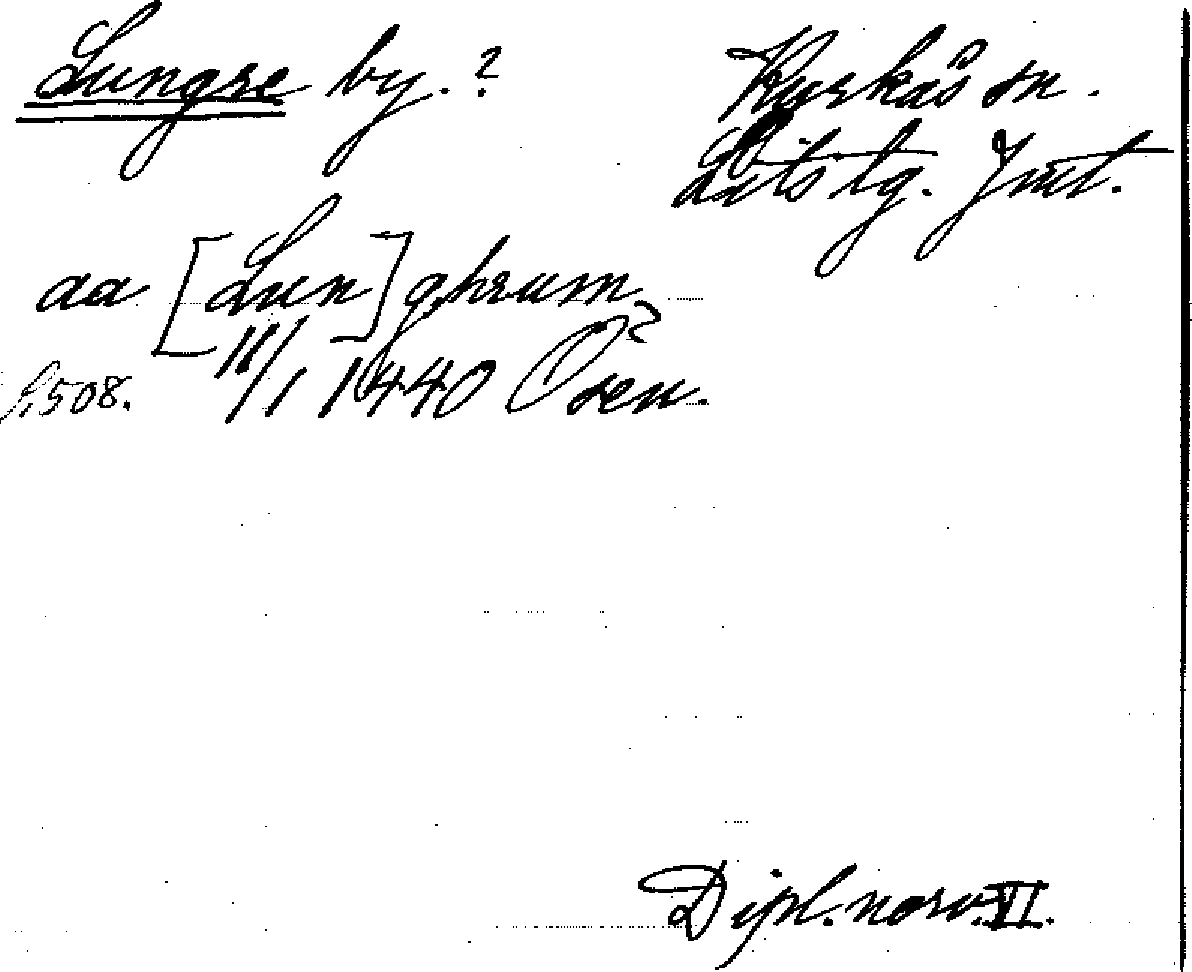 Lungre by. ?
Kyrkås sn.
Lits tg. Jmt.
aa [Lun]ghrum
S. 508. 11/1 1440 Ösen.
Dipl. norv. VI.